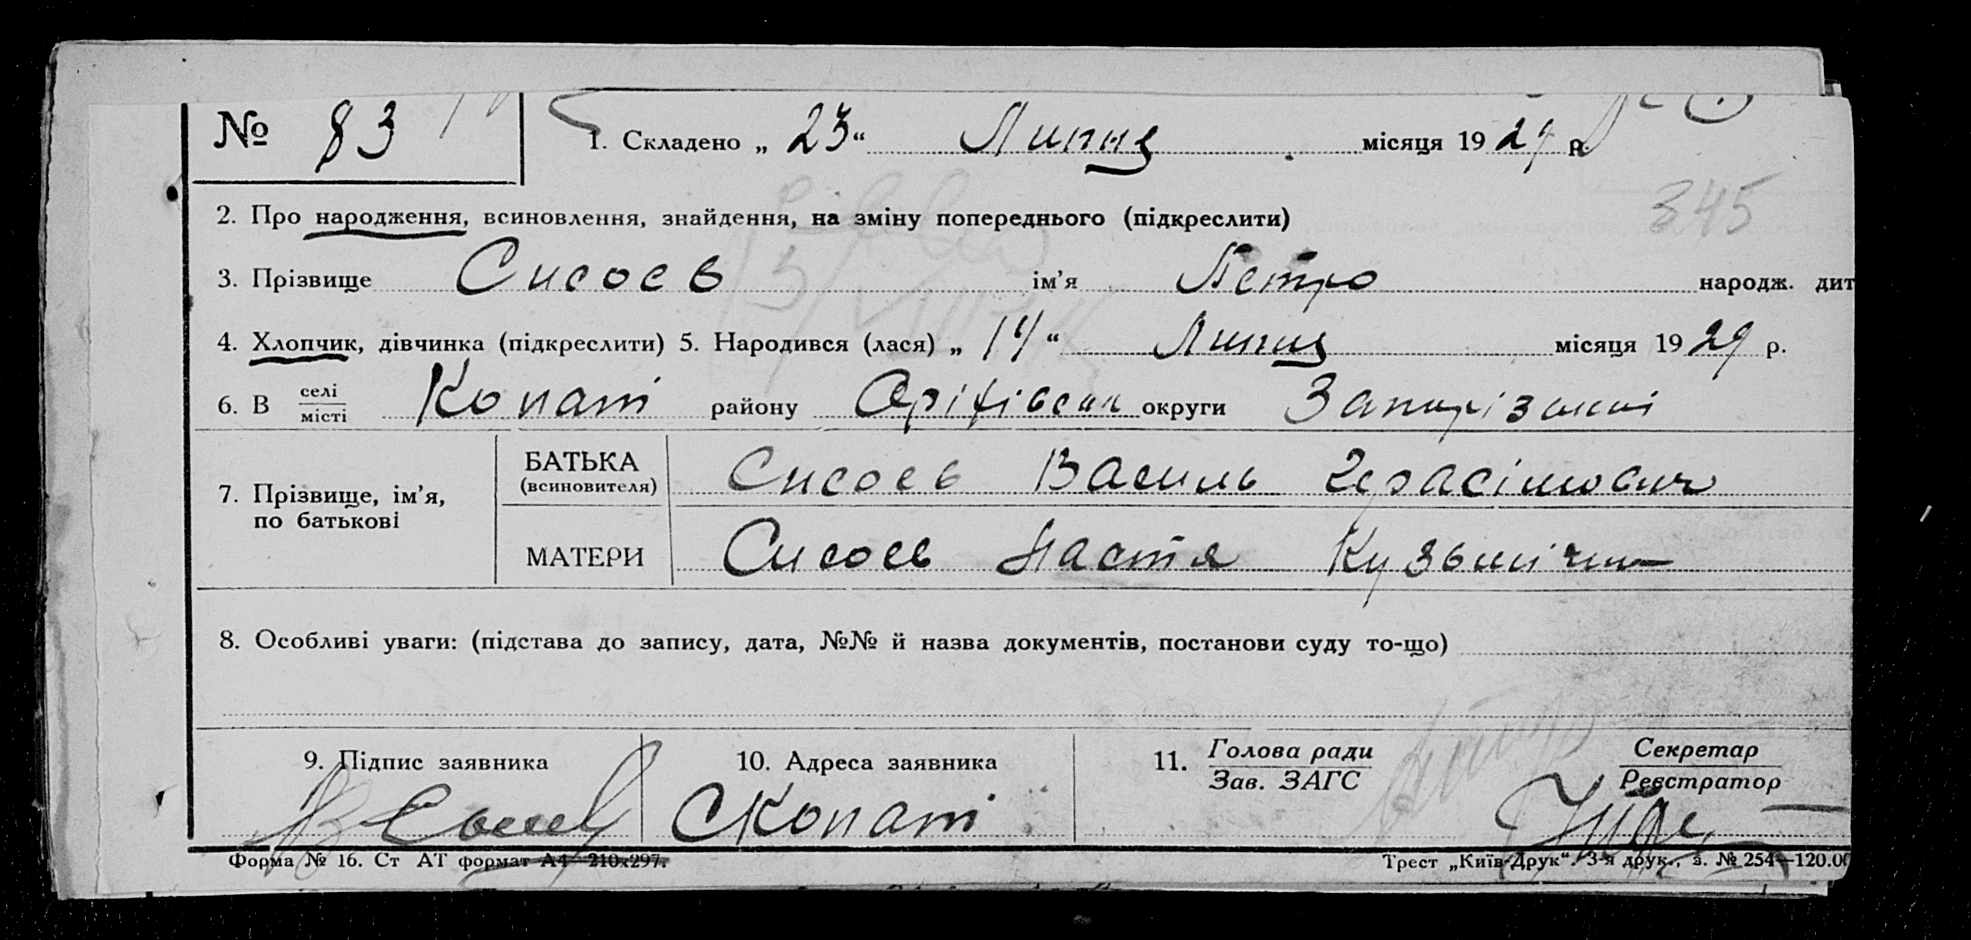 № 83
1. Складено „ 23 “ Липня місяця 1929 р.
345
2. Про народження, всиновлення, знайдення, на зміну попереднього (підкреслити)
3. Прізвище Сисоєв ім’я Петро народж. дит
4. Хлопчик, дівчинка (підкреслити) 5. Народився (лася) „ 14 “ Липня місяця 1929 р.
6. В селі місті Копані району Оріхівськ округи Запорізької
7. Прізвище, ім’я, по батькові
БАТЬКА (всиновителя) Сисоєв Василь Герасімович
МАТЕРИ Сисоєв Настя Кузьмінічна
8. Особливі уваги: (підстава до запису, дата, №№ й назва документів, постанови суду то-що)
9. Підпис заявника
10. Адреса заявника
С Копані
11. Голова ради
Зав. ЗАГС
Секретар
Реєстратор
Форма № 16. Ст АТ формат А4 210х297.
Трест „Київ-Друк“. 3-я друк., з. № 254—120.00